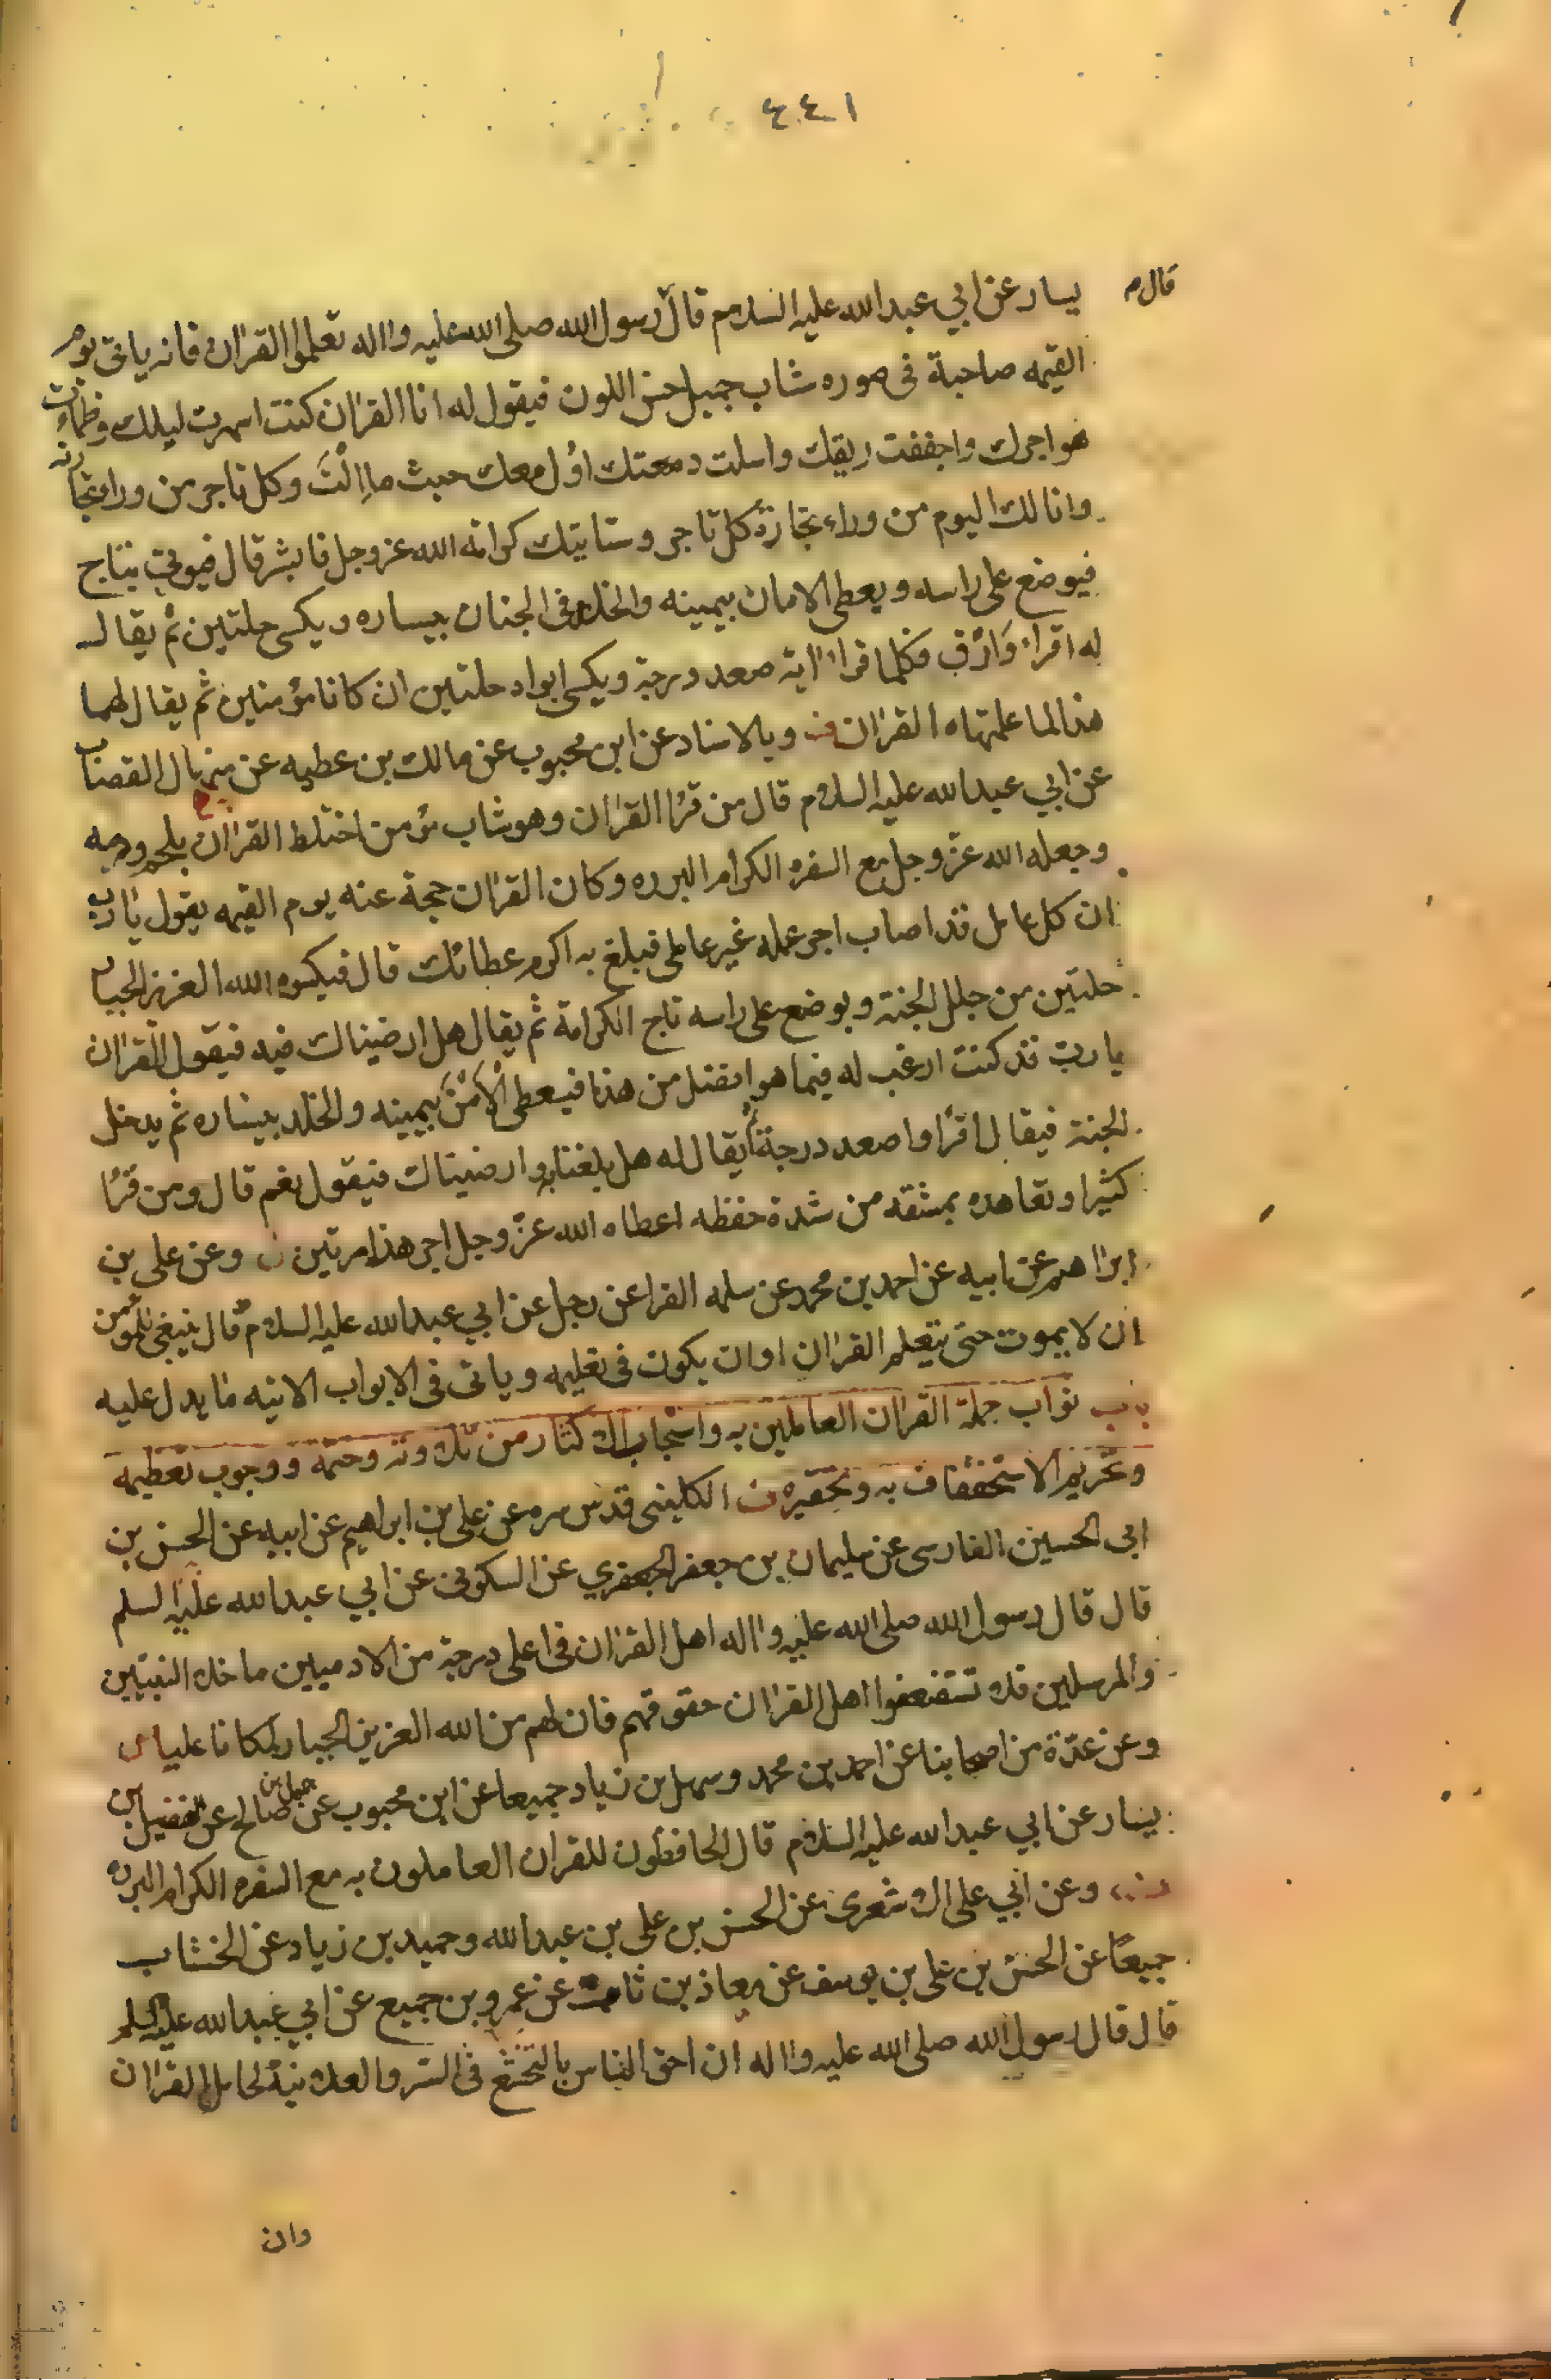 ٤٤١
قال م
يسار عن ابي عبدالله عليه السلام قال رسول الله صلى الله عليه واله تعلموا القران فانه ياتى يوم
القيمه صاحبة فى صوره شاب جميل حسن اللون فيقول له انا القران كنت اسهرت ليلك وظمأت
هواجرك واجففت ريقك واسلت دمعتك اؤل معك حيث ما اُلْتَ وكل تاجر من وراء تجارته
وانا لك اليوم من وراء تجارة كل تاجر وستاتيك كرامة الله عز وجل فابشر قال فيوتى بتاج
فيوضع على راسه ويعطى الامان بيمينه والخلد فى الجنان بيساره ويكسى حلتين ثم يقال
له اقراء وَارْقِ فكلما قراء اية صعد درجة ويكسى ابواه حلتين ان كانا مؤمنين ثم يقال لهما
هذا لما علمتماه القران وبالاسناد عن ابن محبوب عن مالك بن عطيه عن منهال القصاب
عن ابي عبدالله عليه السلام قال من قرا القران وهو شاب مؤمن اختلط القران بلحمه ودمه
وجعله الله عزّ وجل مع السفره الكرام البرره وكان القران حجة عنه يوم القيمه يقول يارب
ان كل عامل قد اصاب اجر عمله غير عاملى فبلغ به اكرم عطائك قال فيكسوه الله العزيز الجبار
حلتين من حلل الجنة ويوضع على راسه تاج الكرامة ثم يقال هل ارضيناك فيه فيقول القران
يا رب قد كنت ارغب له فيما هو افضل من هذا فيعطى الْاَمْنَ بيمينه والخلد بيساره ثم يدخل
الجنة فيقال اقرا واصعد درجة ثم يقال له هل بلغنا به وارضيناك فيقول نعم قال ومن قرا
كثيرا وتعاهده بمشقه من شدة حفظه اعطاه الله عزّ وجل اجر هذا مرتين وعن على بن
ابراهيم عن ابيه عن احمد بن محمد عن سليم الفرا عن رجل عن ابي عبدالله عليه السلام قال ينبغى للمؤمن
ان لا يموت حتى يتعلم القران او ان يكون فى تعليمه وياتى فى الابواب الاتيه ما يدل عليه
باب ثواب حملة القران العاملين به واستحباب الاكثار من تلاوته وختمه ووجوب تعظيمه
وتحريم الاستخفاف به وتحقيره الكلينى قدس سره عن على بن ابراهيم عن ابيه عن الحسن بن
ابى الحسين الفارسى عن سليمان بن جعفر الجعفري عن السكونى عن ابي عبدالله عليه السلم
قال قال رسول الله صلى الله عليه واله اهل القران فى اعلى درجة من الادميين ما خلا النبيين
والمرسلين فلا تستضعفوا اهل القران حقوقهم فان لهم من الله العزيز الجبار لمكانا عليا
وعن عدّة من اصحابنا عن احمد بن محمد وسهل بن زياد جميعا عن ابن محبوب عن جميل بن صالح عن الفضيل بن
يسار عن ابي عبدالله عليه السلام قال الحافظون للقران العاملون به مع السفره الكرام البرره
وعن ابي على الاشعرى عن الحسن بن على بن عبدالله وحميد بن زياد عن الخشاب
جميعًا عن الحسن بن على بن يوسف عن معاذ بن ثابت عن عمرو بن جميع عن ابي عبدالله عليه السلم
قال قال رسول الله صلى الله عليه واله ان احق الناس بالتخشع فى السر والعلانية لحامل القران
وان